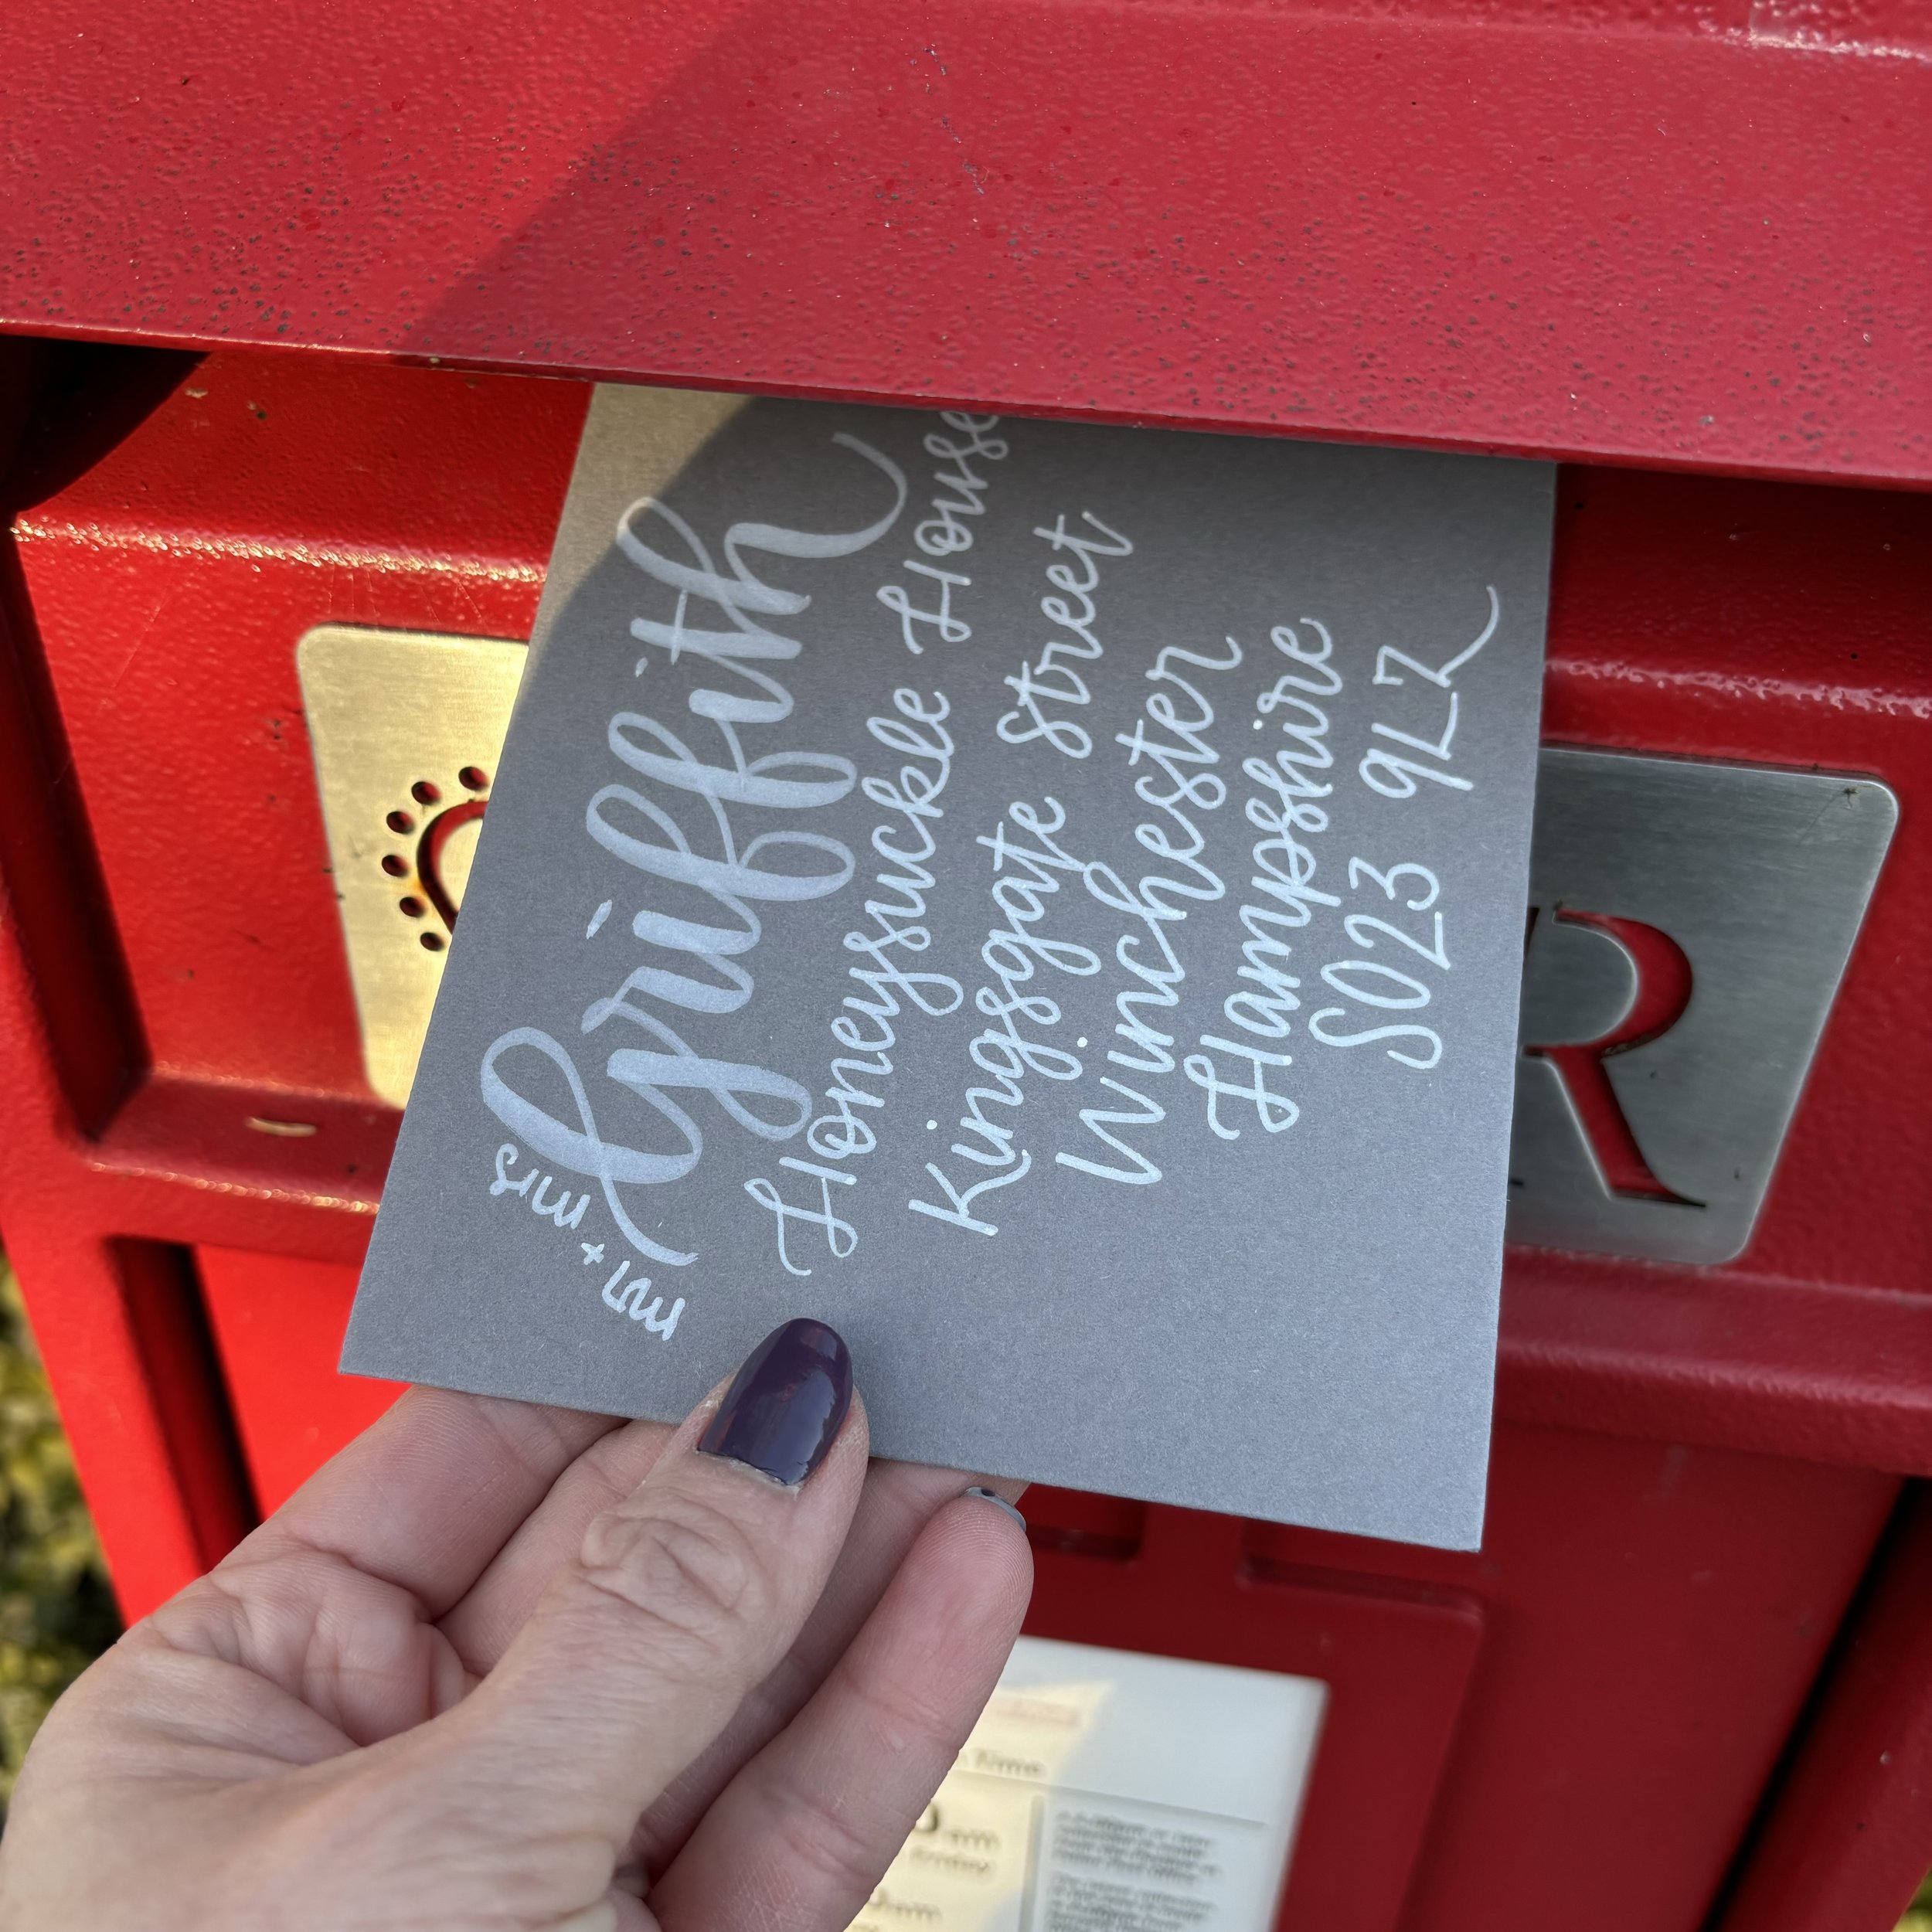 Mr + Mrs
Griffith
Honeysuckle House
Kingsgate Street
Winchester
Hampshire
SO23 9LZ
R
Time